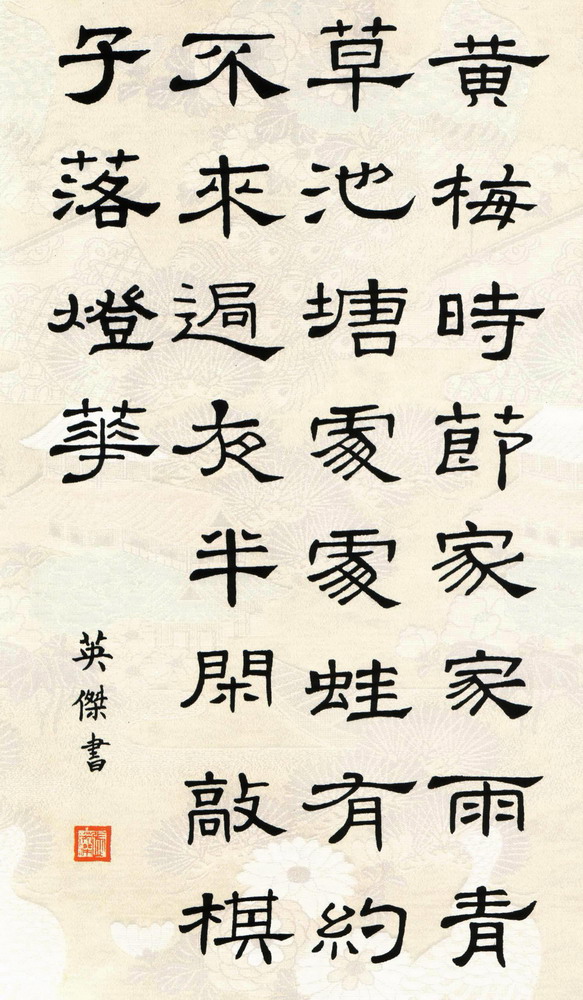 黃梅時節家家雨青
草池塘處處蛙有約
不來過夜半閑敲棋
子落燈華
英傑書